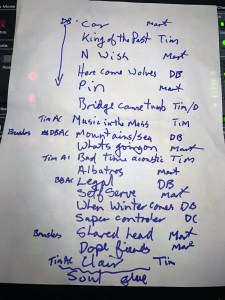 DB. Car Mart
King of the Past Tim
N Wish Mart
Here come Wolves DB
Pin Mart
Bridge came Tim/D
Tim Ac Music in the Mess Tim
Brushes DBAC mountains/sea DB
Whats going on Mart
Tim Ac Bad time acoustic Tim
Albatros Mart
DBAC Legal DB
Self Serve Mart
When Winter comes DB
Saper controler DC
Brushes Shared head Mart
Dope fiends Mart
Tim Ac Clair Tim
Soul Glue